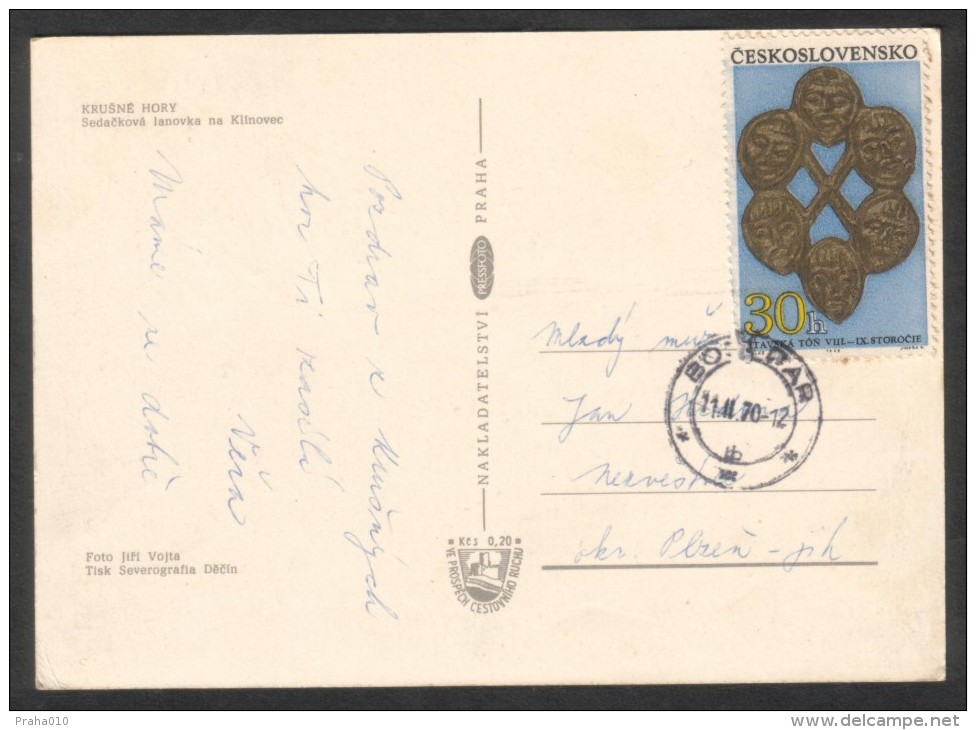 KRUŠNÉ HORY
Sedačková lanovka na Klínovec
Pozdrav z Krušných
hor Ti zasílí
Věra
Máme se dobře
Foto Jiří Vojta
Tisk Severografia Děčín
NAKLADATELSTVÍ PRESSFOTO PRAHA
Kčs 0,20
VE PROSPĚCH CESTOVNÍHO RUCHU
ČESKOSLOVENSKO
30h
VIII.–IX. STOROČIE
11.II.70-12
Mladý muž
Jan
okr. Plzeň - jih
Praha010
www.delcampe.net